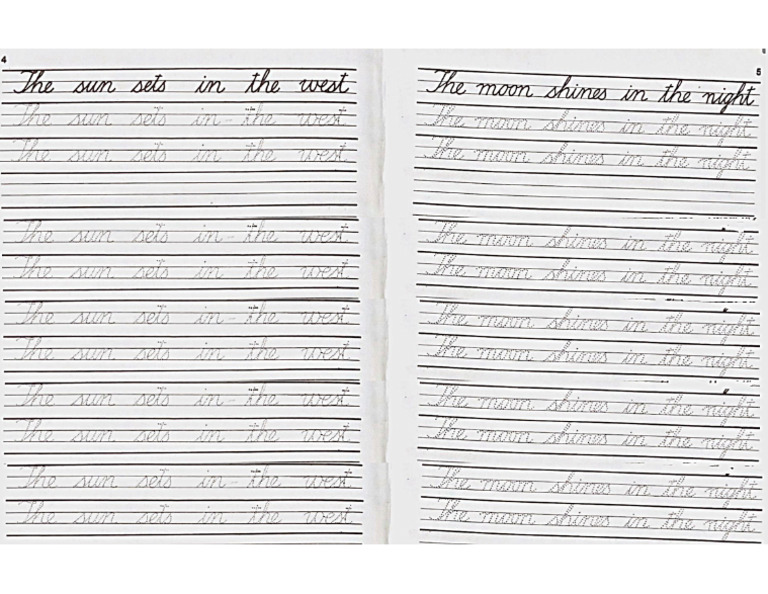 4
The sun sets in the west
The sun sets in the west
The sun sets in the west
The sun sets in the west
The sun sets in the west
The sun sets in the west
The sun sets in the west
The sun sets in the west
The sun sets in the west
The sun sets in the west
The sun sets in the west
5
The moon shines in the night
The moon shines in the night
The moon shines in the night
The moon shines in the night
The moon shines in the night
The moon shines in the night
The moon shines in the night
The moon shines in the night
The moon shines in the night
The moon shines in the night
The moon shines in the night